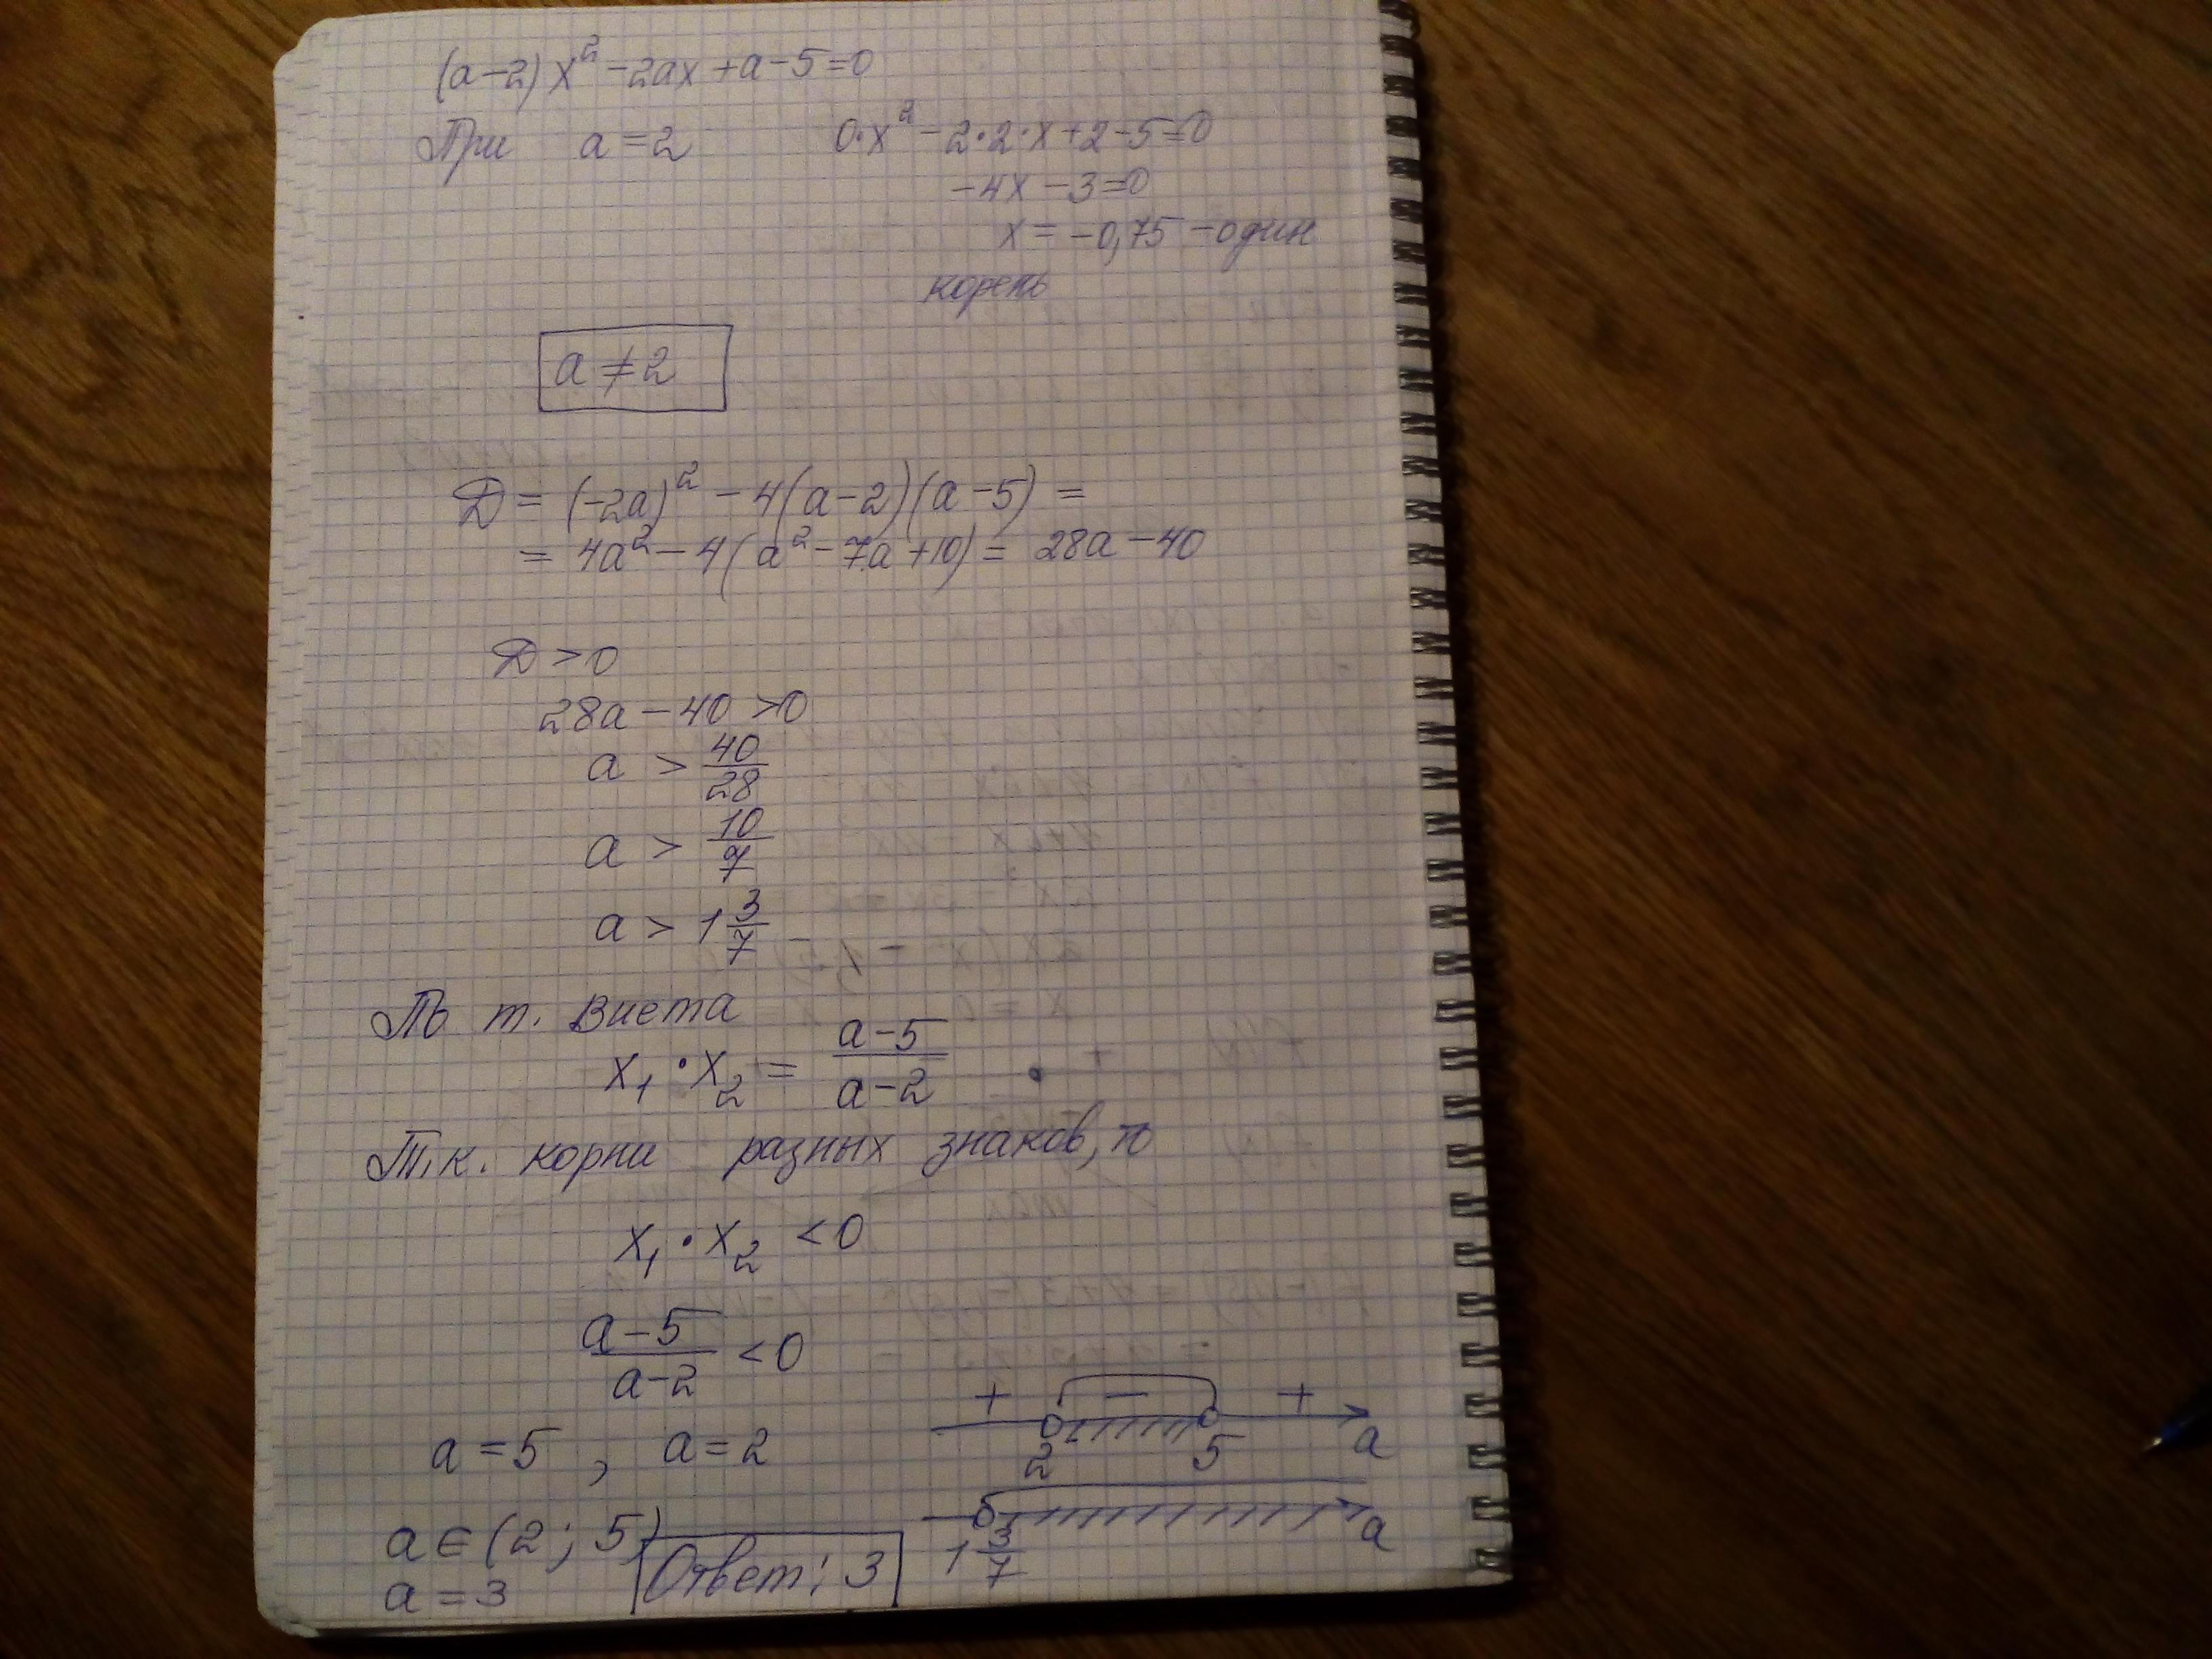 (a-2)x² -2ax +a-5=0
При a=2 0·x² -2·2·x+2-5=0
-4x -3=0
x = -0,75 - один
корень
a ≠ 2
D = (-2a)² - 4(a-2)(a-5) =
= 4a² - 4(a² - 7a +10) = 28a - 40
D > 0
28a - 40 > 0
a > 40/28
a > 10/7
a > 1 3/7
По т. Виета
x₁ · x₂ = (a-5)/(a-2)
Т.к. корни разных знаков, то
x₁ · x₂ < 0
(a-5)/(a-2) < 0
+ - +
2 5 a
a = 5 , a = 2
a
1 3/7
a ∈ (2; 5)
a = 3
Ответ: 3